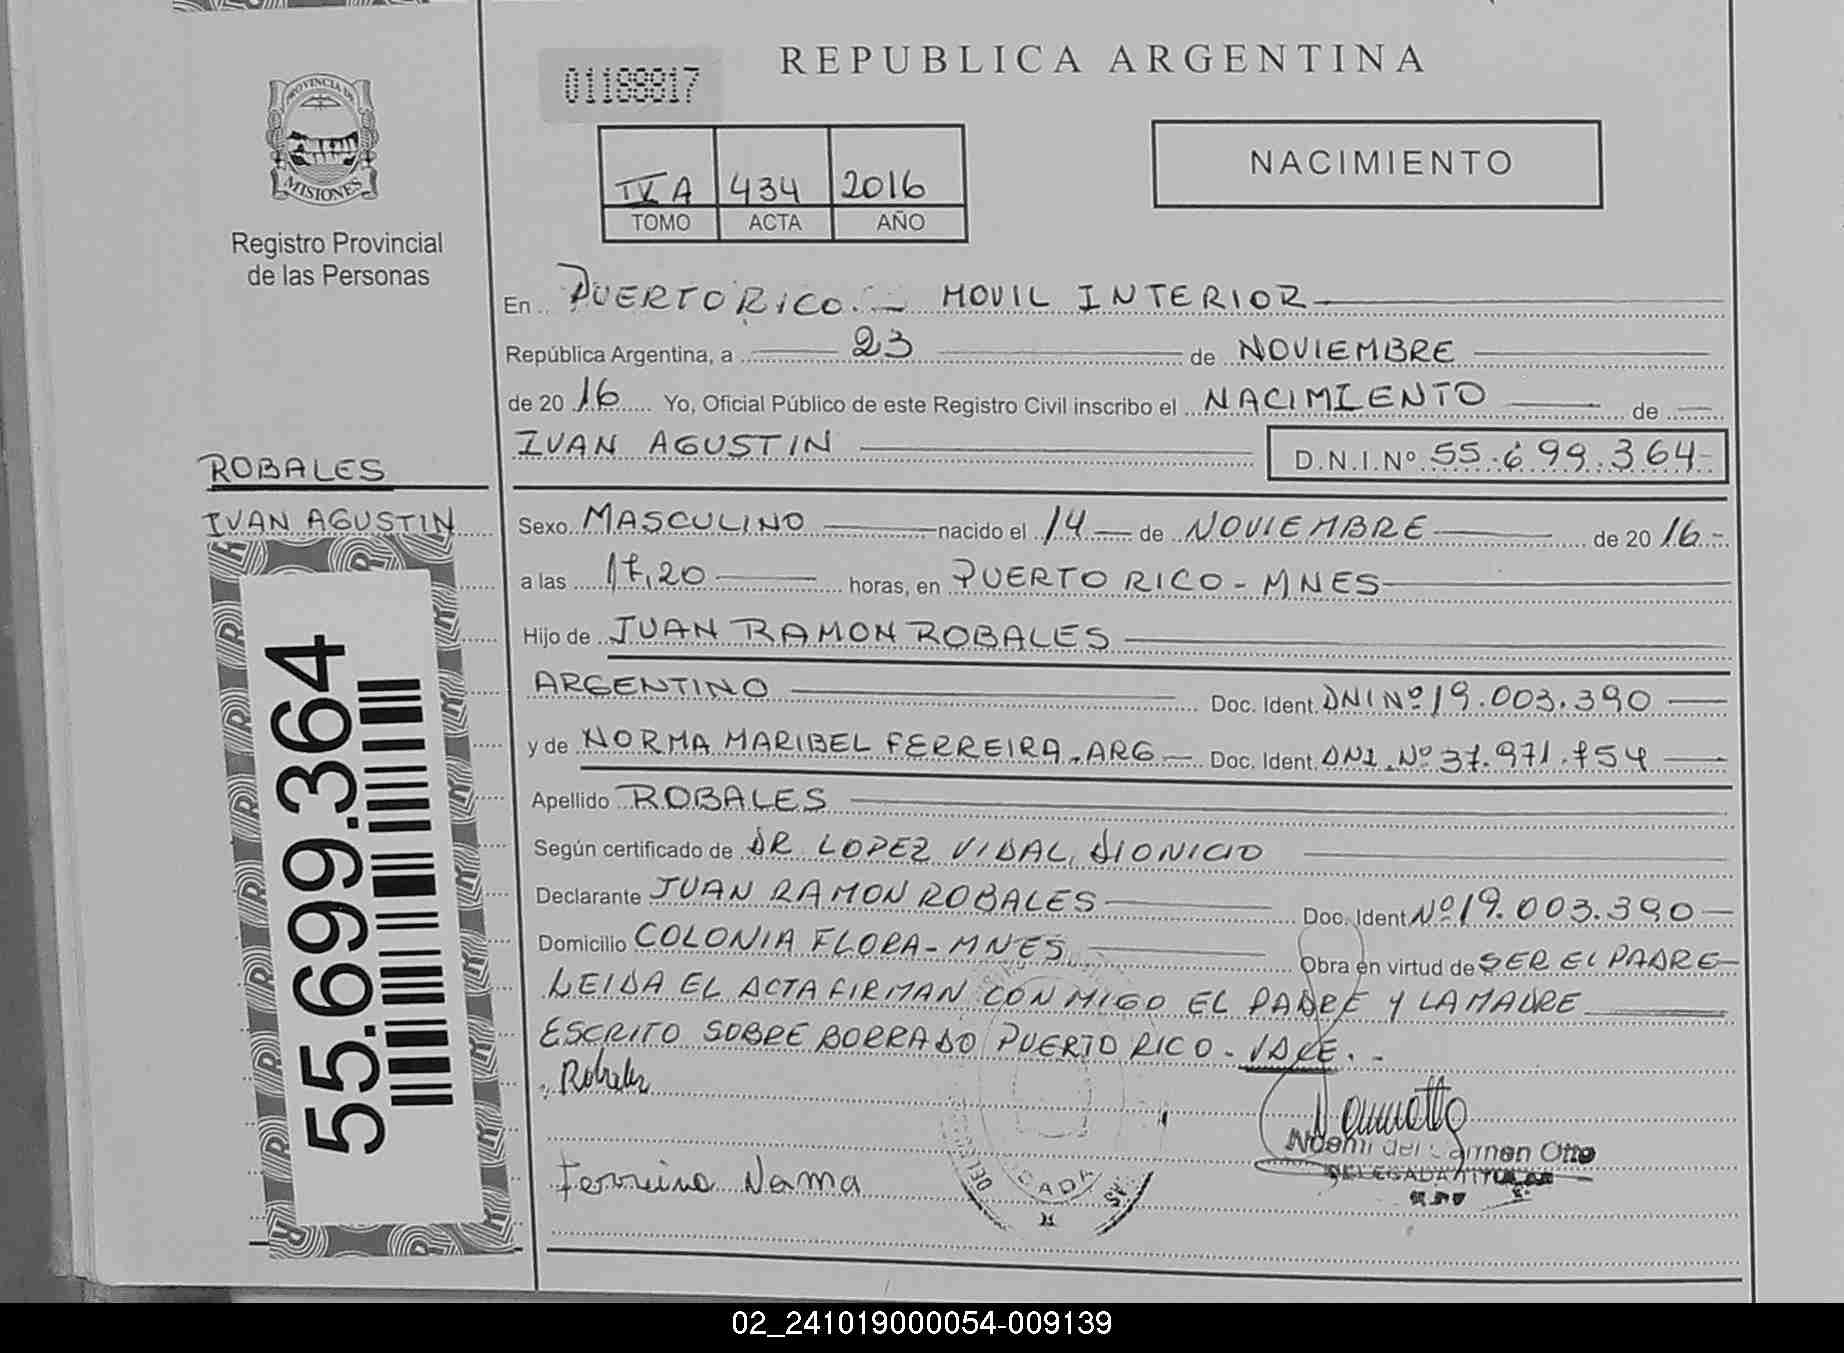 REPUBLICA ARGENTINA
01188817
PROVINCIA DE
MISIONES
Registro Provincial
de las Personas
NACIMIENTO
IV A 434 2016
TOMO ACTA AÑO
En PUERTO RICO. - MOVIL INTERIOR
República Argentina, a 23 de NOVIEMBRE
de 20 16 Yo, Oficial Público de este Registro Civil inscribo el NACIMIENTO de
IVAN AGUSTIN D.N.I.Nº 55.699.364-
ROBALES
IVAN AGUSTIN
55.699.364
Sexo MASCULINO nacido el 14 de NOVIEMBRE de 20 16.-
a las 17,20 horas, en PUERTO RICO - MNES
Hijo de JUAN RAMON ROBALES
ARGENTINO Doc. Ident. DNI Nº 19.003.390
y de NORMA MARIBEL FERREIRA, ARG Doc. Ident. DNI. Nº 37.971.754
Apellido ROBALES
Según certificado de DR LOPEZ VIDAL, DIONICIO
Declarante JUAN RAMON ROBALES Doc. Ident Nº 19.003.390
Domicilio COLONIA FLORA - MNES Obra en virtud de SER EL PADRE
LEIDA EL ACTA FIRMAN CON MIGO EL PADRE Y LA MADRE
ESCRITO SOBRE BORRADO PUERTO RICO - VALE. -
Robales
Noemi del Carmen Otto
DELEGADA TITULAR
Ferreira Norma
02_241019000054-009139